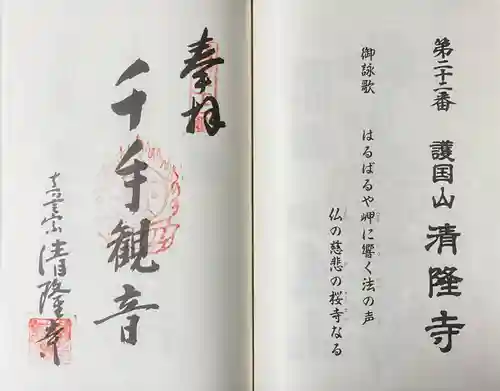 第二十二番 護国山 清隆寺
御詠歌 はるばるや岬に響く法の声
仏の慈悲の桜寺なる
奉拝
千手観音
清隆寺